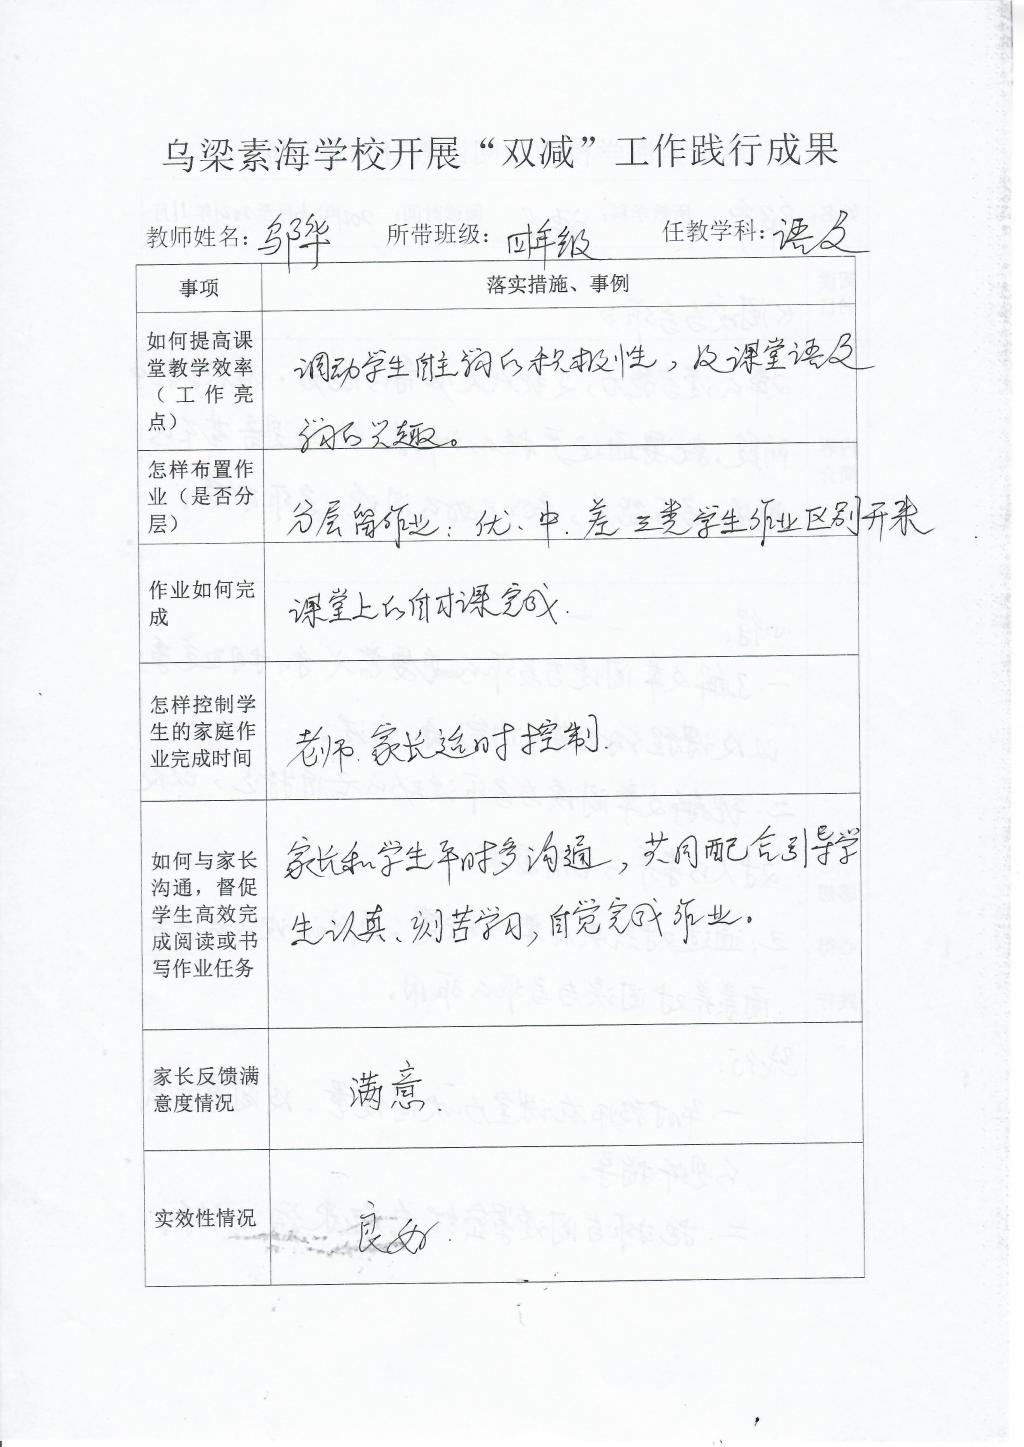 乌梁素海学校开展“双减”工作践行成果
教师姓名：邬华 所带班级：四年级 任教学科：语文
事项 落实措施、事例
如何提高课
堂教学效率
（工作亮
点）
调动学生自主学习的积极性，及课堂语文
学习的兴趣。
怎样布置作
业（是否分
层）
分层留作业：优、中.差三类学生作业区别开来
作业如何完
成
课堂上的自习课完成.
怎样控制学
生的家庭作
业完成时间
老师.家长适时控制.
如何与家长
沟通，督促
学生高效完
成阅读或书
写作业任务
家长和学生平时多沟通，共同配合引导学
生认真、刻苦学习，自觉完成作业。
家长反馈满
意度情况
满意.
实效性情况
良好.